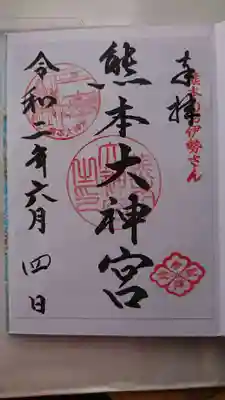 奉拝
熊本のお伊勢さん
熊本大神宮
令和二年六月四日